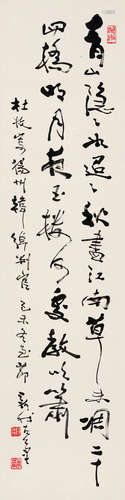 青山隐隐水迢迢秋尽江南草未凋二十
四桥明月夜玉人何处教吹箫
杜牧寄扬州韩绰判官己未冬